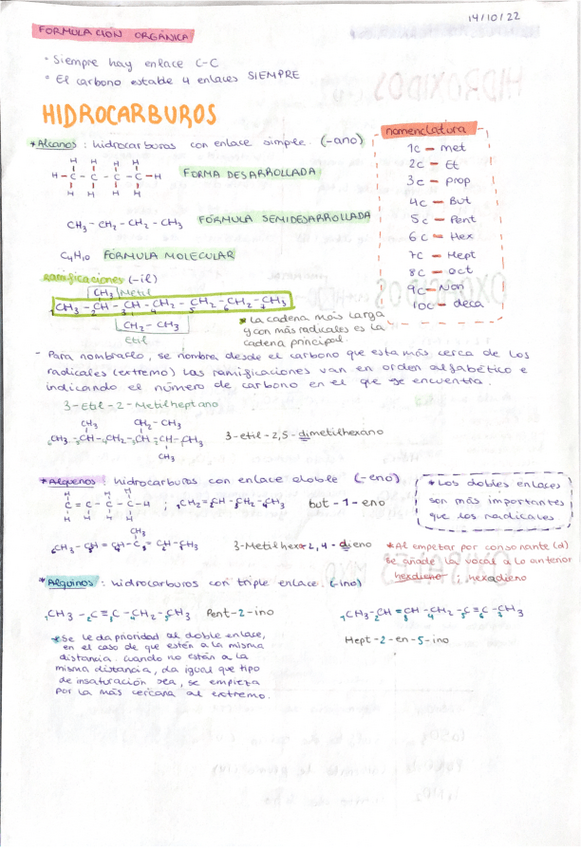 14/10/22
FORMULACIÓN ORGÁNICA
° Siempre hay enlace C-C
° El carbono estable 4 enlaces SIEMPRE
HIDROCARBUROS
*Alcanos: hidrocarburos con enlace simple. (-ano)
H H H H
H-C-C-C-C-H FORMA DESARROLLADA
H H H H
CH3-CH2-CH2-CH3 FÓRMULA SEMIDESARROLLADA
C4H10 FÓRMULA MOLECULAR
nomenclatura
1c - met
2c - Et
3c - prop
4c - But
5c - Pent
6c - Hex
7c - Hept
8c - oct
9c - Non
10c - deca
ramificaciones (-il)
CH3 Metil
CH3-CH-CH-CH2-CH2-CH2-CH3
CH2-CH3
etil
* la cadena más larga
y con más radicales es la
cadena principal.
- Para nombrarlo, se nombra desde el carbono que esta más cerca de los
radicales (extremo) Las ramificaciones van en orden alfabético e
indicando el número de carbono en el que se encuentra.
3-Etil-2-Metilheptano
CH3 CH2-CH3
CH3-CH-CH2-CH-CH-CH3 3-etil-2,5-dimetilhexano
CH3
*Alquenos: hidrocarburos con enlace doble (-eno)
H H H H
C=C-C-C-H ; CH2=CH-CH2-CH3 but-1-eno
H H H H
* Los dobles enlaces
son más importantes
que los radicales
CH3
CH3-CH=CH-C=CH-CH3 3-Metilhex-2,4-dieno
*Al empezar por consonante (d)
se añade la vocal a lo anterior
hexdieno ; hexadieno
*Alquinos: hidrocarburos con triple enlace. (-ino)
CH3-C≡C-CH2-CH3 Pent-2-ino
CH3-CH=CH-CH2-C≡C-CH3
Hept-2-en-5-ino
*Se le da prioridad al doble enlace,
en el caso de que estén a la misma
distancia. cuando no están a la
misma distancia, da igual que tipo
de insaturación sea, se empieza
por la más cercana al extremo.